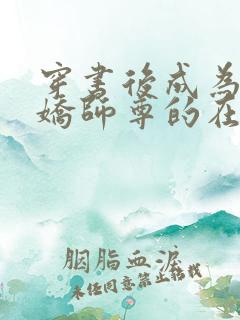 穿书後成为
嬌師尊的在
胭脂血淚
未任同意禁止转载